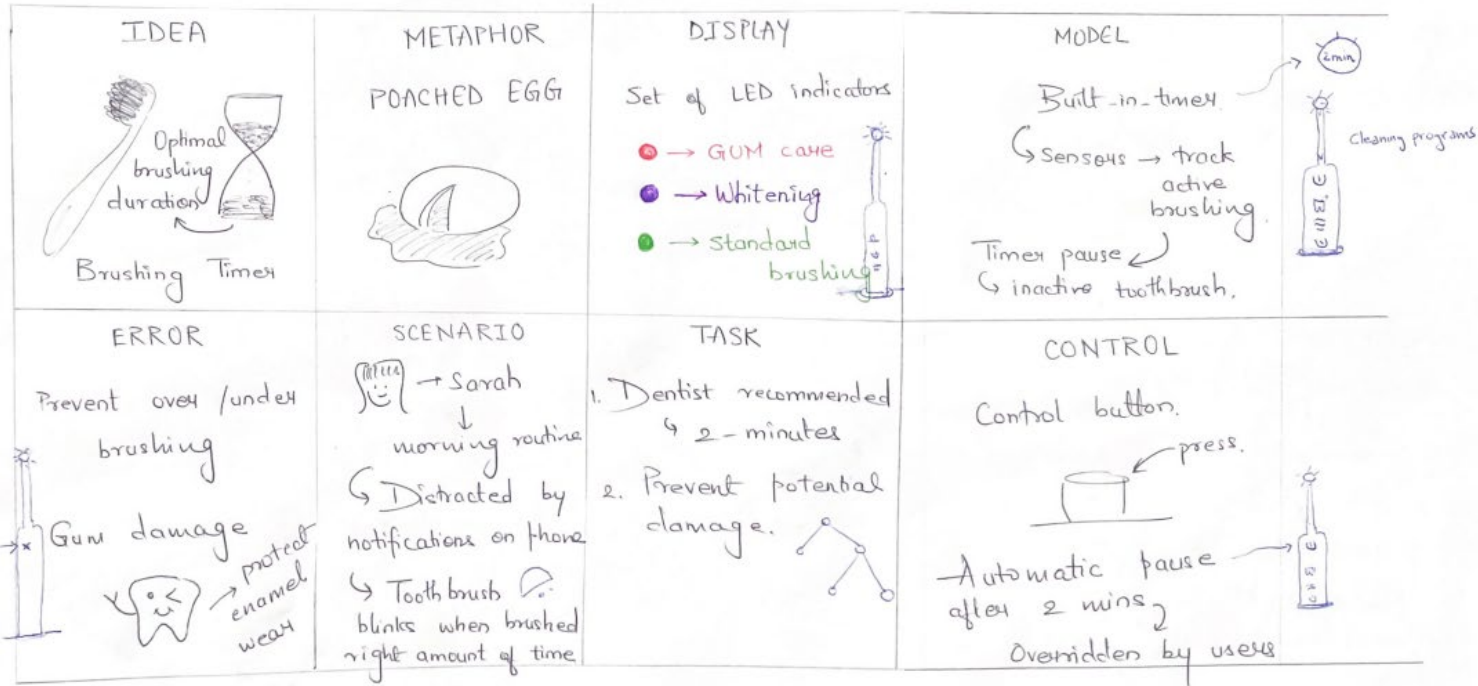 IDEA
Optimal
brushing
duration
Brushing Timer
METAPHOR
POACHED EGG
DISPLAY
Set of LED indicators
→ GUM care
→ Whitening
→ Standard
brushing
MODEL
2min
Built-in-timer
Sensors → track
active
brushing.
Timer pause
inactive toothbrush.
Cleaning programs
ERROR
Prevent over/under
brushing
Gum damage
protect
enamel
wear
SCENARIO
→ Sarah
morning routine
Distracted by
notifications on phone
Toothbrush
blinks when brushed
right amount of time
TASK
1. Dentist recommended
2-minutes
2. Prevent potential
damage.
CONTROL
Control button.
press.
Automatic pause
after 2 mins
Overridden by users